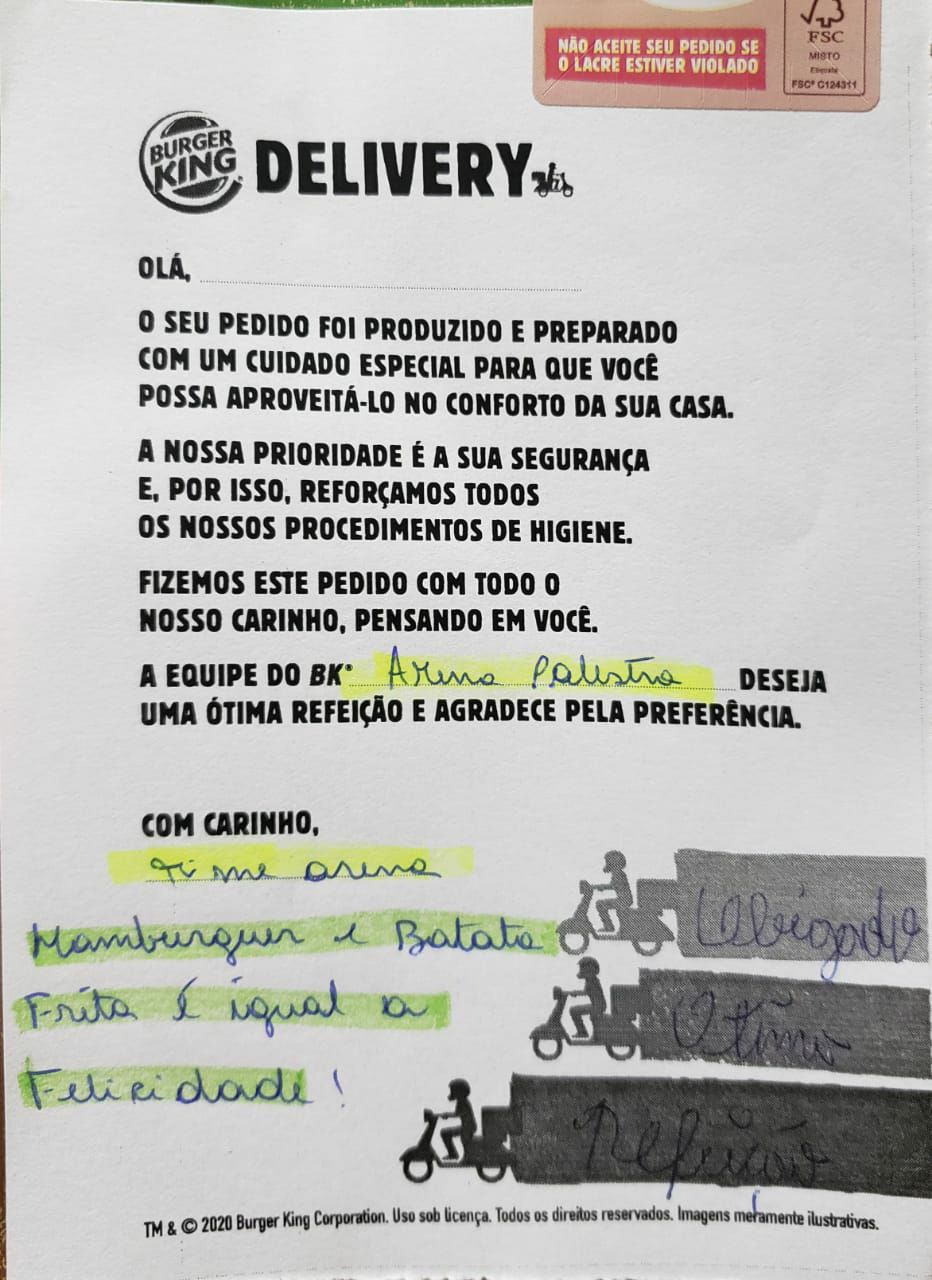 NÃO ACEITE SEU PEDIDO SE
O LACRE ESTIVER VIOLADO
FSC
MISTO
Etiqueta
FSC® C124311
BURGER
KING
DELIVERY
OLÁ,
O SEU PEDIDO FOI PRODUZIDO E PREPARADO
COM UM CUIDADO ESPECIAL PARA QUE VOCÊ
POSSA APROVEITÁ-LO NO CONFORTO DA SUA CASA.
A NOSSA PRIORIDADE É A SUA SEGURANÇA
E, POR ISSO, REFORÇAMOS TODOS
OS NOSSOS PROCEDIMENTOS DE HIGIENE.
FIZEMOS ESTE PEDIDO COM TODO O
NOSSO CARINHO, PENSANDO EM VOCÊ.
A EQUIPE DO BK® Arena Palestra DESEJA
UMA ÓTIMA REFEIÇÃO E AGRADECE PELA PREFERÊNCIA.
COM CARINHO,
Time arena
Hamburguer e Batata
Frita É igual a
Felicidade!
Obrigado
Otimo
Refeição
TM & © 2020 Burger King Corporation. Uso sob licença. Todos os direitos reservados. Imagens meramente ilustrativas.